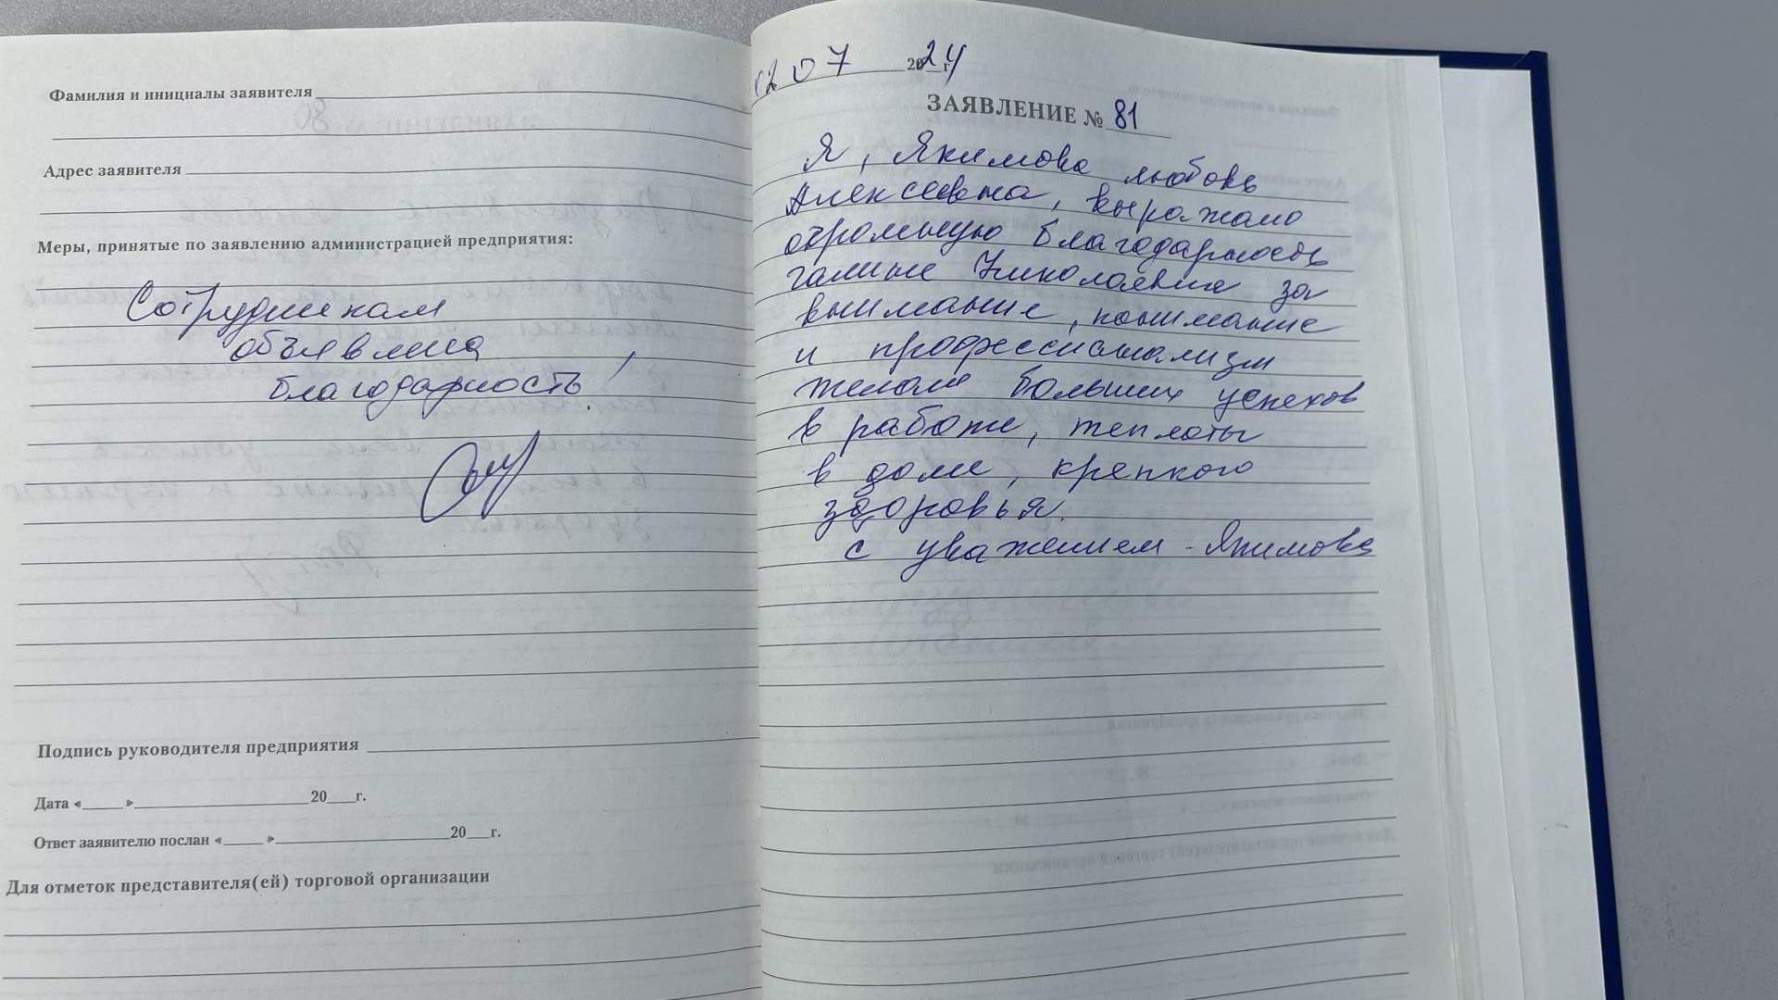 Фамилия и инициалы заявителя
Адрес заявителя
Меры, принятые по заявлению администрацией предприятия:
Сотрудникам
объявлена
благодарность!
Подпись руководителя предприятия
Дата «____»____20__г.
Ответ заявителю послан «____»____20__г.
Для отметок представителя(ей) торговой организации
07 2024 г.
ЗАЯВЛЕНИЕ № 81
Я, Якимова Любовь
Алексеевна, выражаю
огромную благодарность
Галине Николаевне за
внимание, понимание
и профессионализм
желаю больших успехов
в работе, теплоты
в доме, крепкого
здоровья.
с уважением - Якимова